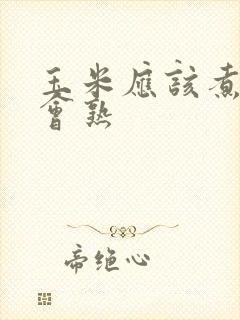 玉米應該煮
會熟
帝绝心